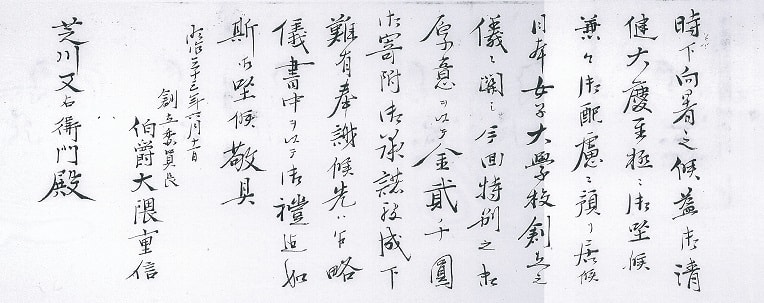 時下向暑之候益御清
健大慶至極ニ御坐候
兼々御配慮ニ預り居候
日本女子大學校創立之
儀ニ関シ今回特別之御
厚意ヲ以テ金貳千圓
御寄附御承諾被成下
難有奉謝候先ハ乍略
儀書中ヲ以テ御禮迠如
斯御坐候敬具
明治三十三年六月十一日
創立委員長
伯爵大隈重信
芝川又右衛門殿